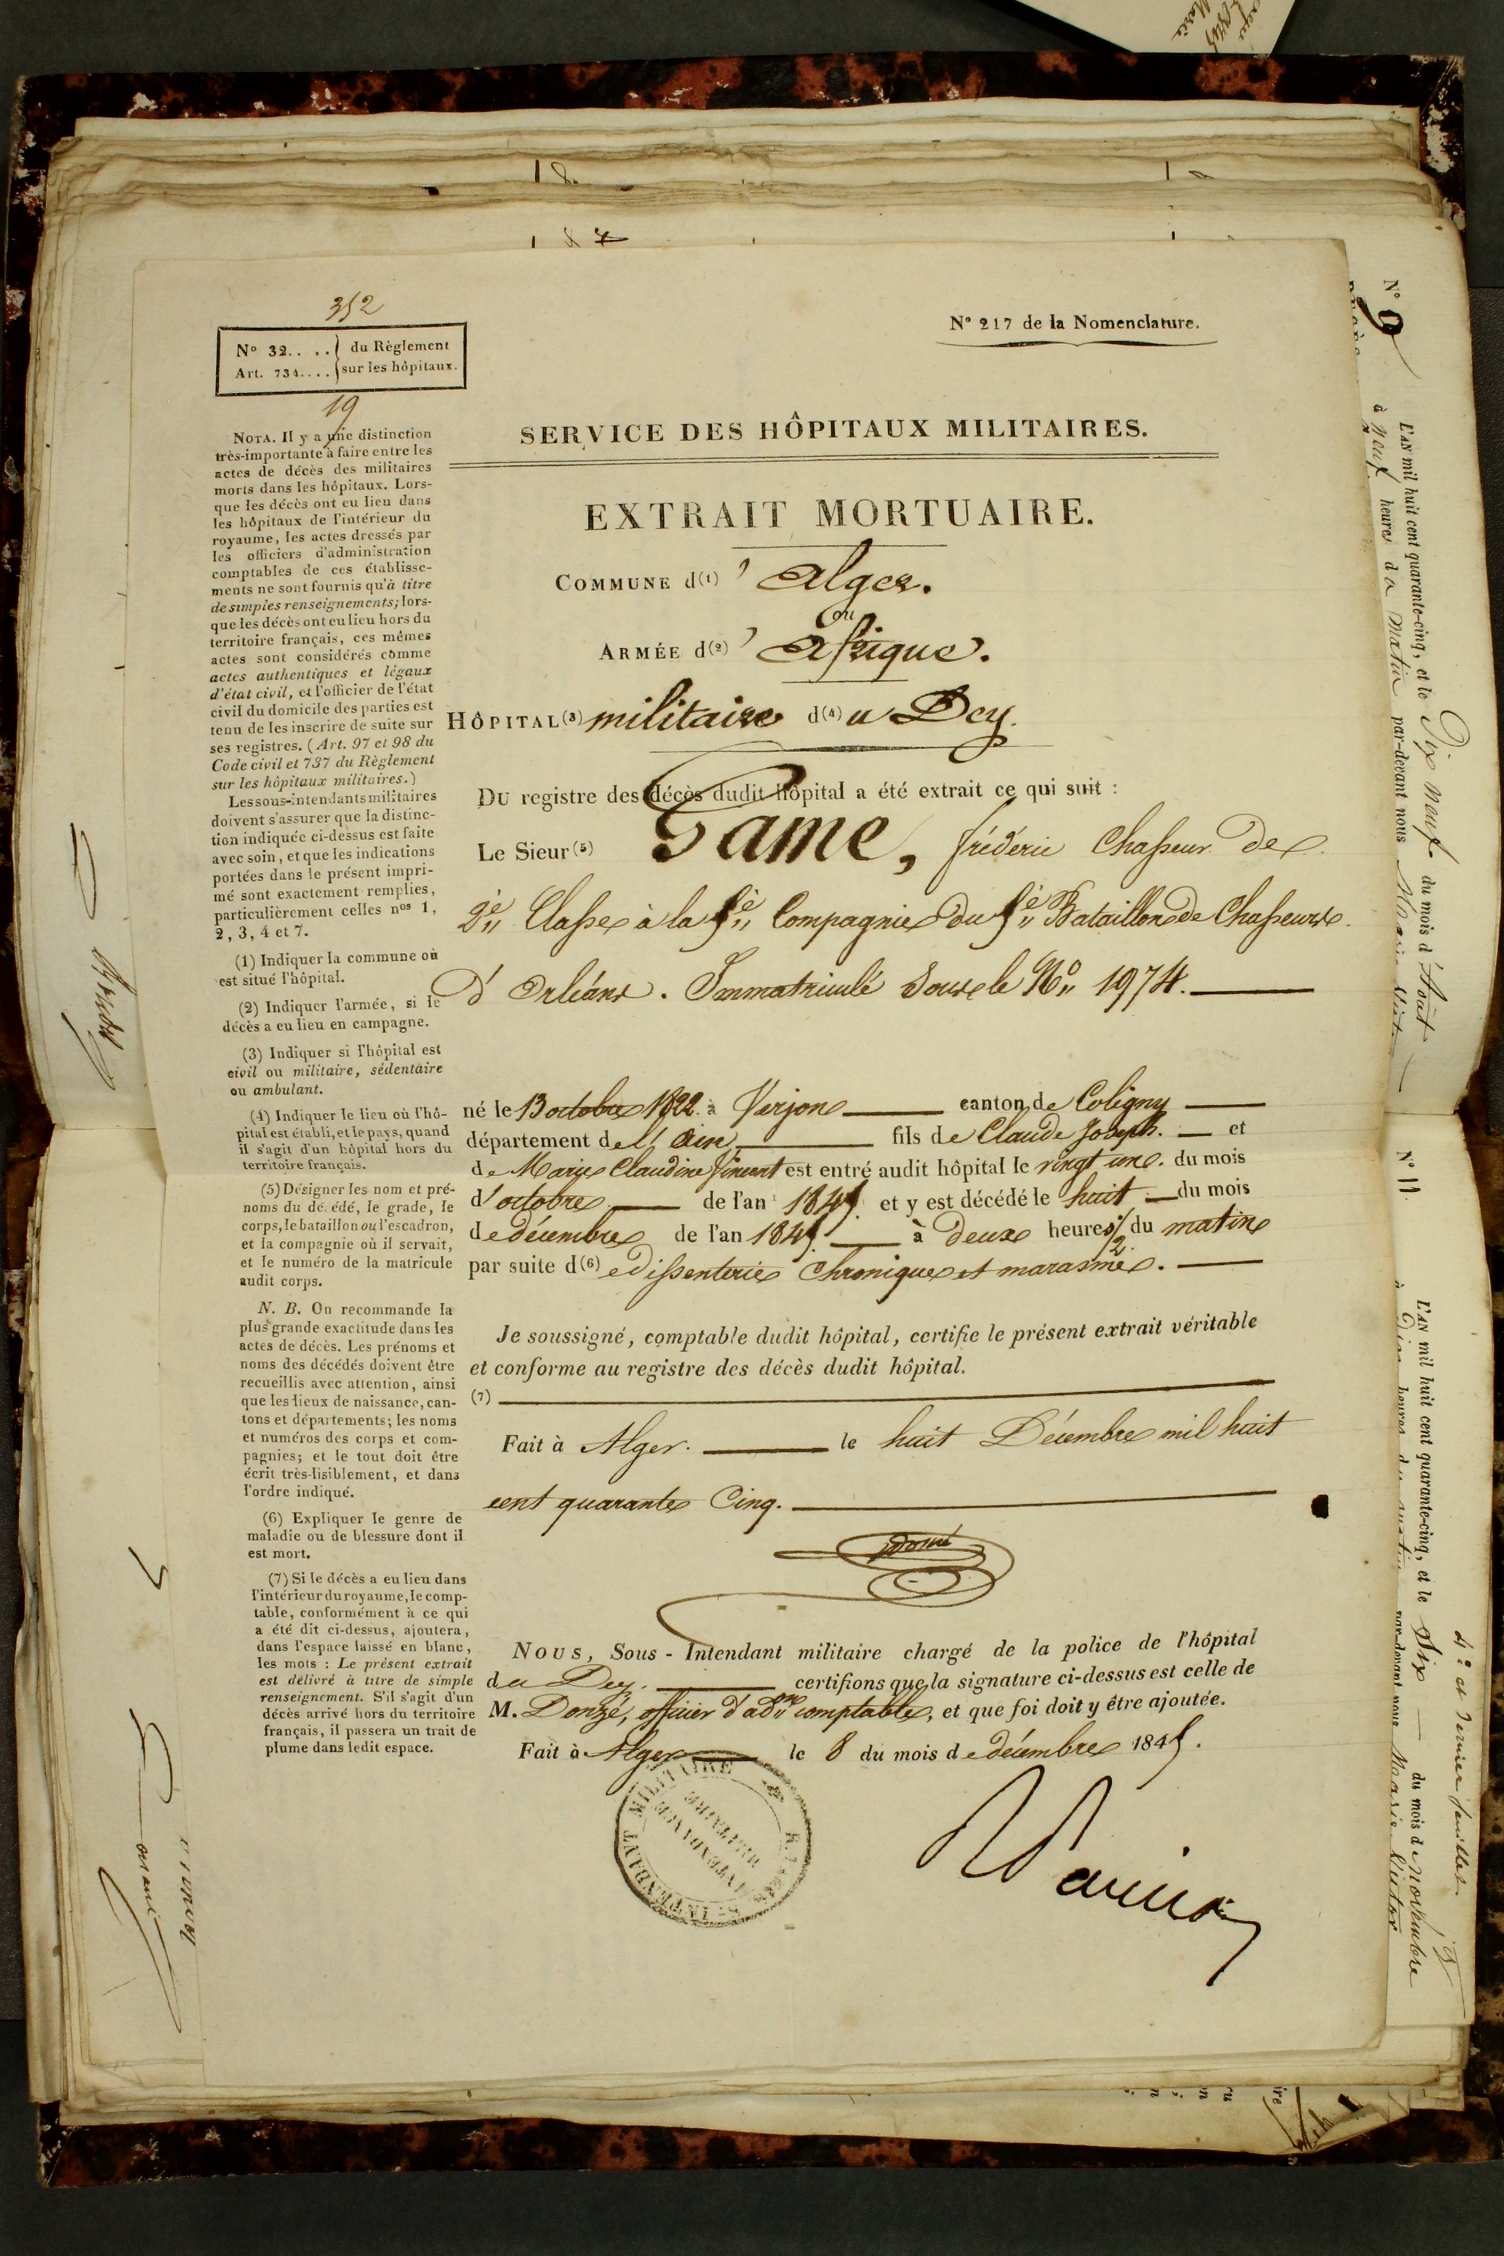 352
N° 32.... du Règlement
Art. 734.... sur les hôpitaux.
19
N° 217 de la Nomenclature.
SERVICE DES HÔPITAUX MILITAIRES.
EXTRAIT MORTUAIRE.
COMMUNE d(1) ' Alger.
ou
ARMÉE d(2) ' Afrique.
HÔPITAL (3) militaire d(4) u Dey.
DU registre des décès dudit hôpital a été extrait ce qui suit :
Le Sieur (5) Game, frédéric Chasseur de
2è Classe à la 5è Compagnie du 5è Bataillon de Chasseurs
d' Orléans. Immatriculé Sous le No 1974.
né le 13 octobre 1822 à Verjon canton de Coligny
département de l' Ain fils de Claude Joseph. et
de Marie Claudine Vincent est entré audit hôpital le vingt un. du mois
d' octobre de l'an 1845. et y est décédé le huit du mois
de décembre de l'an 1845. à deux heures 1/2 du matin
par suite d(6) e dissenterie Chronique et marasme.
Je soussigné, comptable dudit hôpital, certifie le présent extrait véritable
et conforme au registre des décès dudit hôpital.
(7)
Fait à Alger. le huit Décembre mil huit
cent quarante Cinq.
Donzé
NOUS, Sous-Intendant militaire chargé de la police de l'hôpital
du Dey. certifions que la signature ci-dessus est celle de
M. Donzé, officier d'adon comptable, et que foi doit y être ajoutée.
Fait à Alger le 8 du mois de décembre 1845.
NOTA. Il y a une distinction
très-importante à faire entre les
actes de décès des militaires
morts dans les hôpitaux. Lors-
que les décès ont eu lieu dans
les hôpitaux de l'intérieur du
royaume, les actes dressés par
les officiers d'administration
comptables de ces établisse-
ments ne sont fournis qu'à titre
de simples renseignements; lors-
que les décès ont eu lieu hors du
territoire français, ces mêmes
actes sont considérés comme
actes authentiques et légaux
d'état civil, et l'officier de l'état
civil du domicile des parties est
tenu de les inscrire de suite sur
ses registres. (Art. 97 et 98 du
Code civil et 737 du Règlement
sur les hôpitaux militaires.)
Les sous-intendants militaires
doivent s'assurer que la distinc-
tion indiquée ci-dessus est faite
avec soin, et que les indications
portées dans le présent impri-
mé sont exactement remplies,
particulièrement celles nos 1,
2, 3, 4 et 7.
(1) Indiquer la commune où
est situé l'hôpital.
(2) Indiquer l'armée, si le
décès a eu lieu en campagne.
(3) Indiquer si l'hôpital est
civil ou militaire, sédentaire
ou ambulant.
(4) Indiquer le lieu où l'hô-
pital est établi, et le pays, quand
il s'agit d'un hôpital hors du
territoire français.
(5) Désigner les nom et pré-
noms du décédé, le grade, le
corps, le bataillon ou l'escadron,
et la compagnie où il servait,
et le numéro de la matricule
audit corps.
N. B. On recommande la
plus grande exactitude dans les
actes de décès. Les prénoms et
noms des décédés doivent être
recueillis avec attention, ainsi
que les lieux de naissance, can-
tons et départements; les noms
et numéros des corps et com-
pagnies; et le tout doit être
écrit très-lisiblement, et dans
l'ordre indiqué.
(6) Expliquer le genre de
maladie ou de blessure dont il
est mort.
(7) Si le décès a eu lieu dans
l'intérieur du royaume, le comp-
table, conformément à ce qui
a été dit ci-dessus, ajoutera,
dans l'espace laissé en blanc,
les mots : Le présent extrait
est délivré à titre de simple
renseignement. S'il s'agit d'un
décès arrivé hors du territoire
français, il passera un trait de
plume dans ledit espace.
N° 9
L'AN mil huit cent quarante-cinq, et le Dix neuf du mois d'Août
à neuf heures du matin par-devant nous
N° 11.
L'AN mil huit cent quarante-cinq, et le Six du mois de Novembre
4e et dernier feuillet